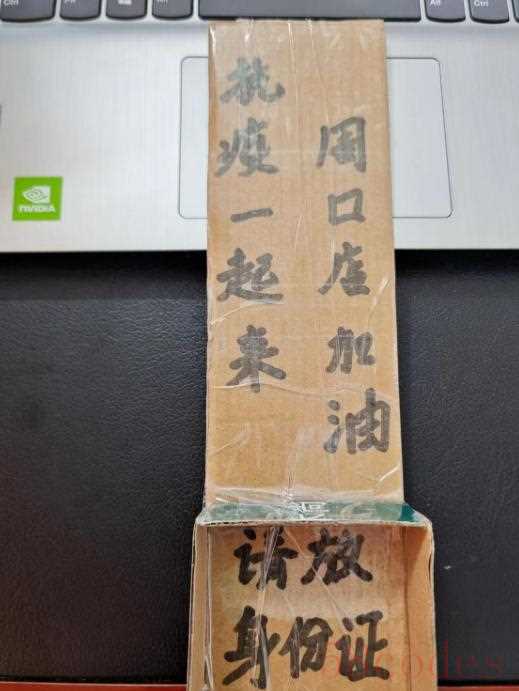 抗疫一起来
周口店加油
请放
身份证
NVIDIA
Alt
Ctrl